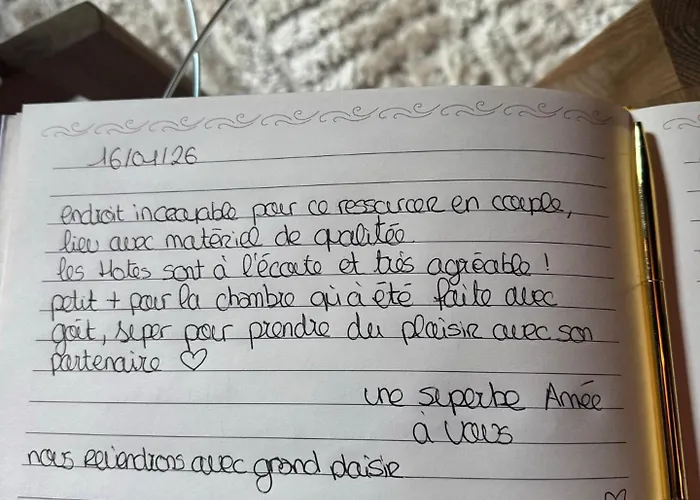 16/01/26
endroit incroyable pour ce ressourcer en couple,
lieu avec matériel de qualitée.
les Hotes sont à l'écoute et très agréable !
petit + pour la chambre qui à été faite avec
goût, super pour prendre du plaisir avec son
partenaire ♡
une superbe Année
à vous
nous reviendrons avec grand plaisir